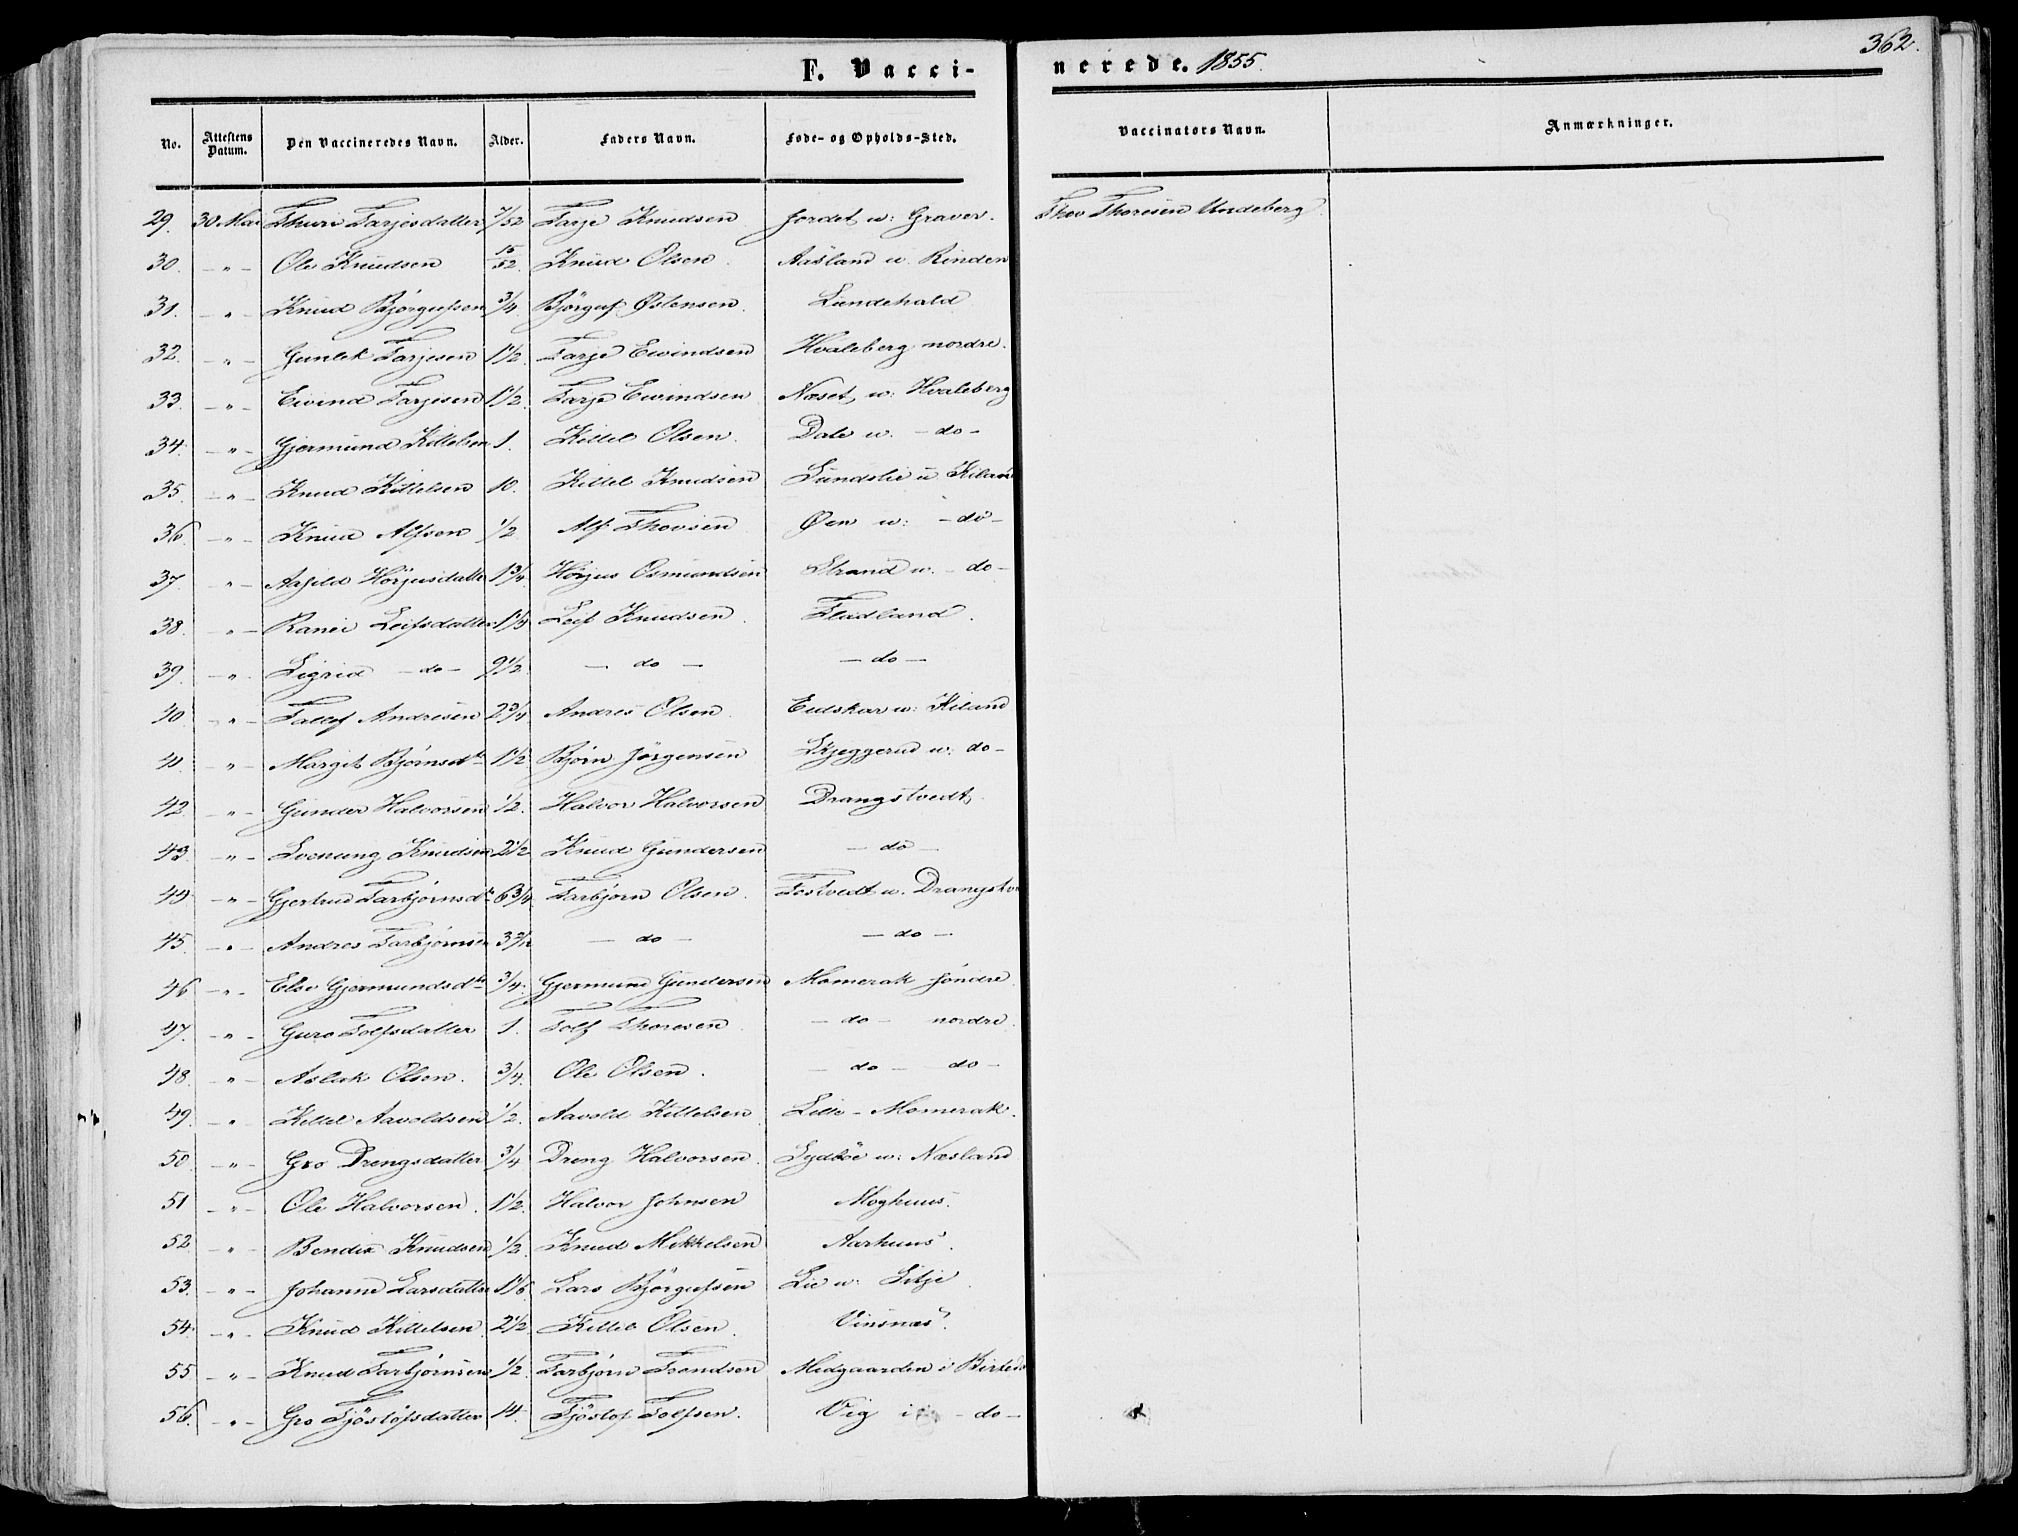 362.
F. Vacci-
nerede. 1855.
No. Attestens Datum. Den Vaccineredes Navn. Alder. Faders Navn. Føde- og Opholds-Sted. Vaccinators Navn. Anmærkninger.
29. 30 Mai Thuri Tarjesdatter 7/52 Tarje Knudsen Jordet u: Graver. Thov Thoresen Undeberg
30. - " - Ole Knudsen 15/52. Knud Olsen. Aasland u. Rinden
31. - " - Knud Bjørgufsen 3/4. Bjørguf Østensen. Lundehald
32. - " - Gunlek Tarjesen 1 1/2. Tarje Eivindsen Hvaleberg nordre.
33. - " - Eivind Tarjesen 1 1/2. Tarje Eivindsen Næset u: Hvaleberg
34. - " - Gjermund Kittelsen 1. Kittel Olsen. Dale u. - do -
35. - " - Knud Kittelsen 10. Kittel Knudsen Sundslie u Kiland
36. - " - Knud Alfsen 1/2 Alf Thovsen Øen u: - do -
37. - " - Aasild Hørjusdatter 1 3/4. Hørjus Osmundsen Strand u. - do -
38. - " - Ranei Leifsdatter 1 1/4 Leif Knudsen. Fladland.
39. - " - Sigrid - do - 9 1/2. - do - - do -
40 - " - Tallef Andresen 2 3/4 Andres Olsen. Eidskar u: Kiland
41. - " - Margit Bjørnsdtr 1 1/2 Bjørn Jørgensen Skjeggerud u: do -
42. - " - Gunder Halvorsen 1/2. Halvor Halvorsen Drangstvedt.
43. - " - Svenung Knudsen 2 1/2 Knud Gundersen - do -
44. - " - Gjertrud Tarbjørnsdr 6 3/4. Tarbjørn Olsen. Tostvedt u. Drangstv
45. - " - Andres Tarbjørnsen 3 2/12 - do - - do -
46 - " - Else Gjermundsdtr 3/4. Gjermund Gundersen Momerak søndre
47. - " - Guro Tolfsdatter 1. Tolf Thoresen - do - nordre.
48. - " - Aslak Olsen. 3/4. Ole Olsen. - do - do -
49. - " - Kittel Aavoldsen 1/2. Aavold Kittelsen Lille - Momerak.
50. - " - Gro Drengsdatter 3/4 Dreng Halvorsen. Sydbøe u: Næsland
51 - " - Ole Halvorsen. 1 1/2. Halvor Johnsen Moghuus.
52 - " - Bendix Knudsen 1/2. Knud Mikkelsen Aarhuus.
53. - " - Johanne Larsdatter 1 1/6. Lars Bjørgufsen Lie u: Sitje.
54. - " - Knud Kittelsen. 2 1/2 Kittel Olsen. Vinsnæs.
55 - " - Knud Tarbjørnsen 1/2. Tarbjørn Trondsen Midgaarden i Birteda
56. - " - Gro Tjöstölfsdatter 14. Tjöstof Tolfsen. Vig i - do -